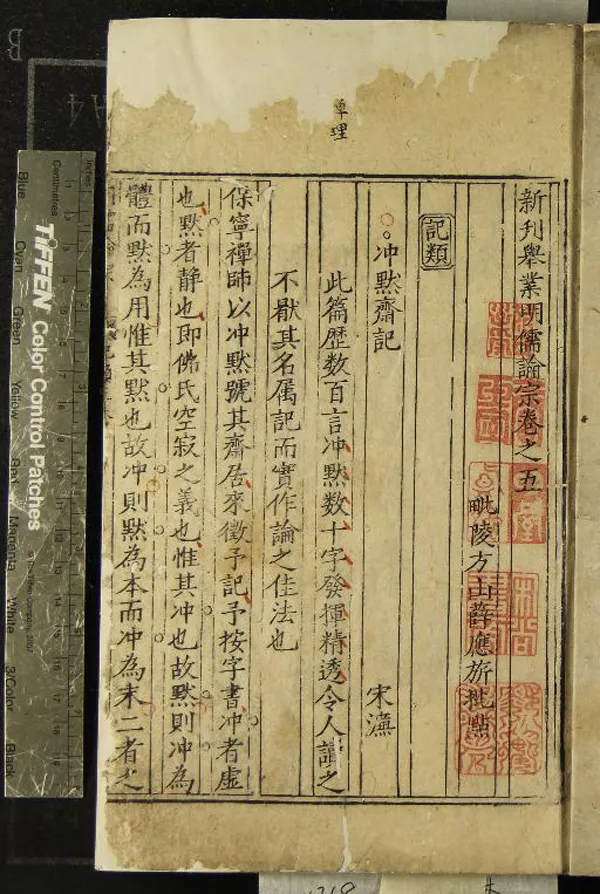 新刊舉業明儒論宗卷之五
毗陵方山薛應旂批點
記類
冲默齋記
宋濂
此篇歷数百言冲默数十字發揮精透令人讀之
不厭其名属記而實作論之佳法也
保寧禪師以冲默號其齋居來徵予記予按字書冲者虛
也默者静也即佛氏空寂之義也惟其冲也故默則冲為
體而默為用惟其默也故冲則默為本而冲為末二者之
章理
TIFFEN Color Control Patches
Centimetres
Inches
Blue
Cyan
Green
Yellow
Red
Magenta
White
3/Color
Black
A4
B